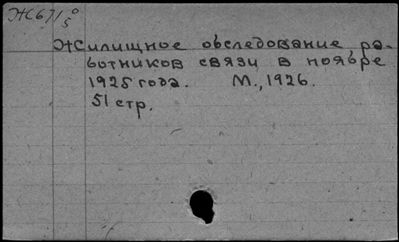 Ж671 0/5
Жилищное обследование ра-
ботников связи в ноябре
1925 года. М., 1926.
51 стр.